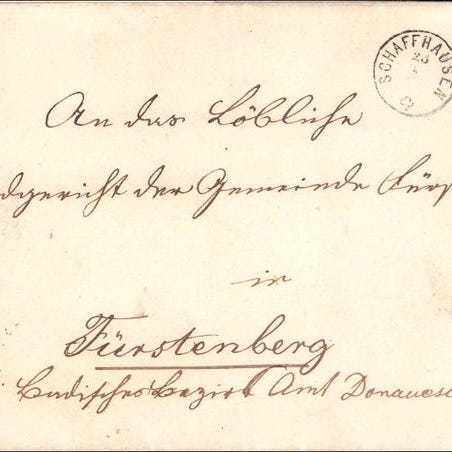 SCHAFFHAUSEN
23
An das Löbliche
dgericht der Gemeinde Fürs
in
Fürstenberg
Badisches Bezirk Amt Donauesc